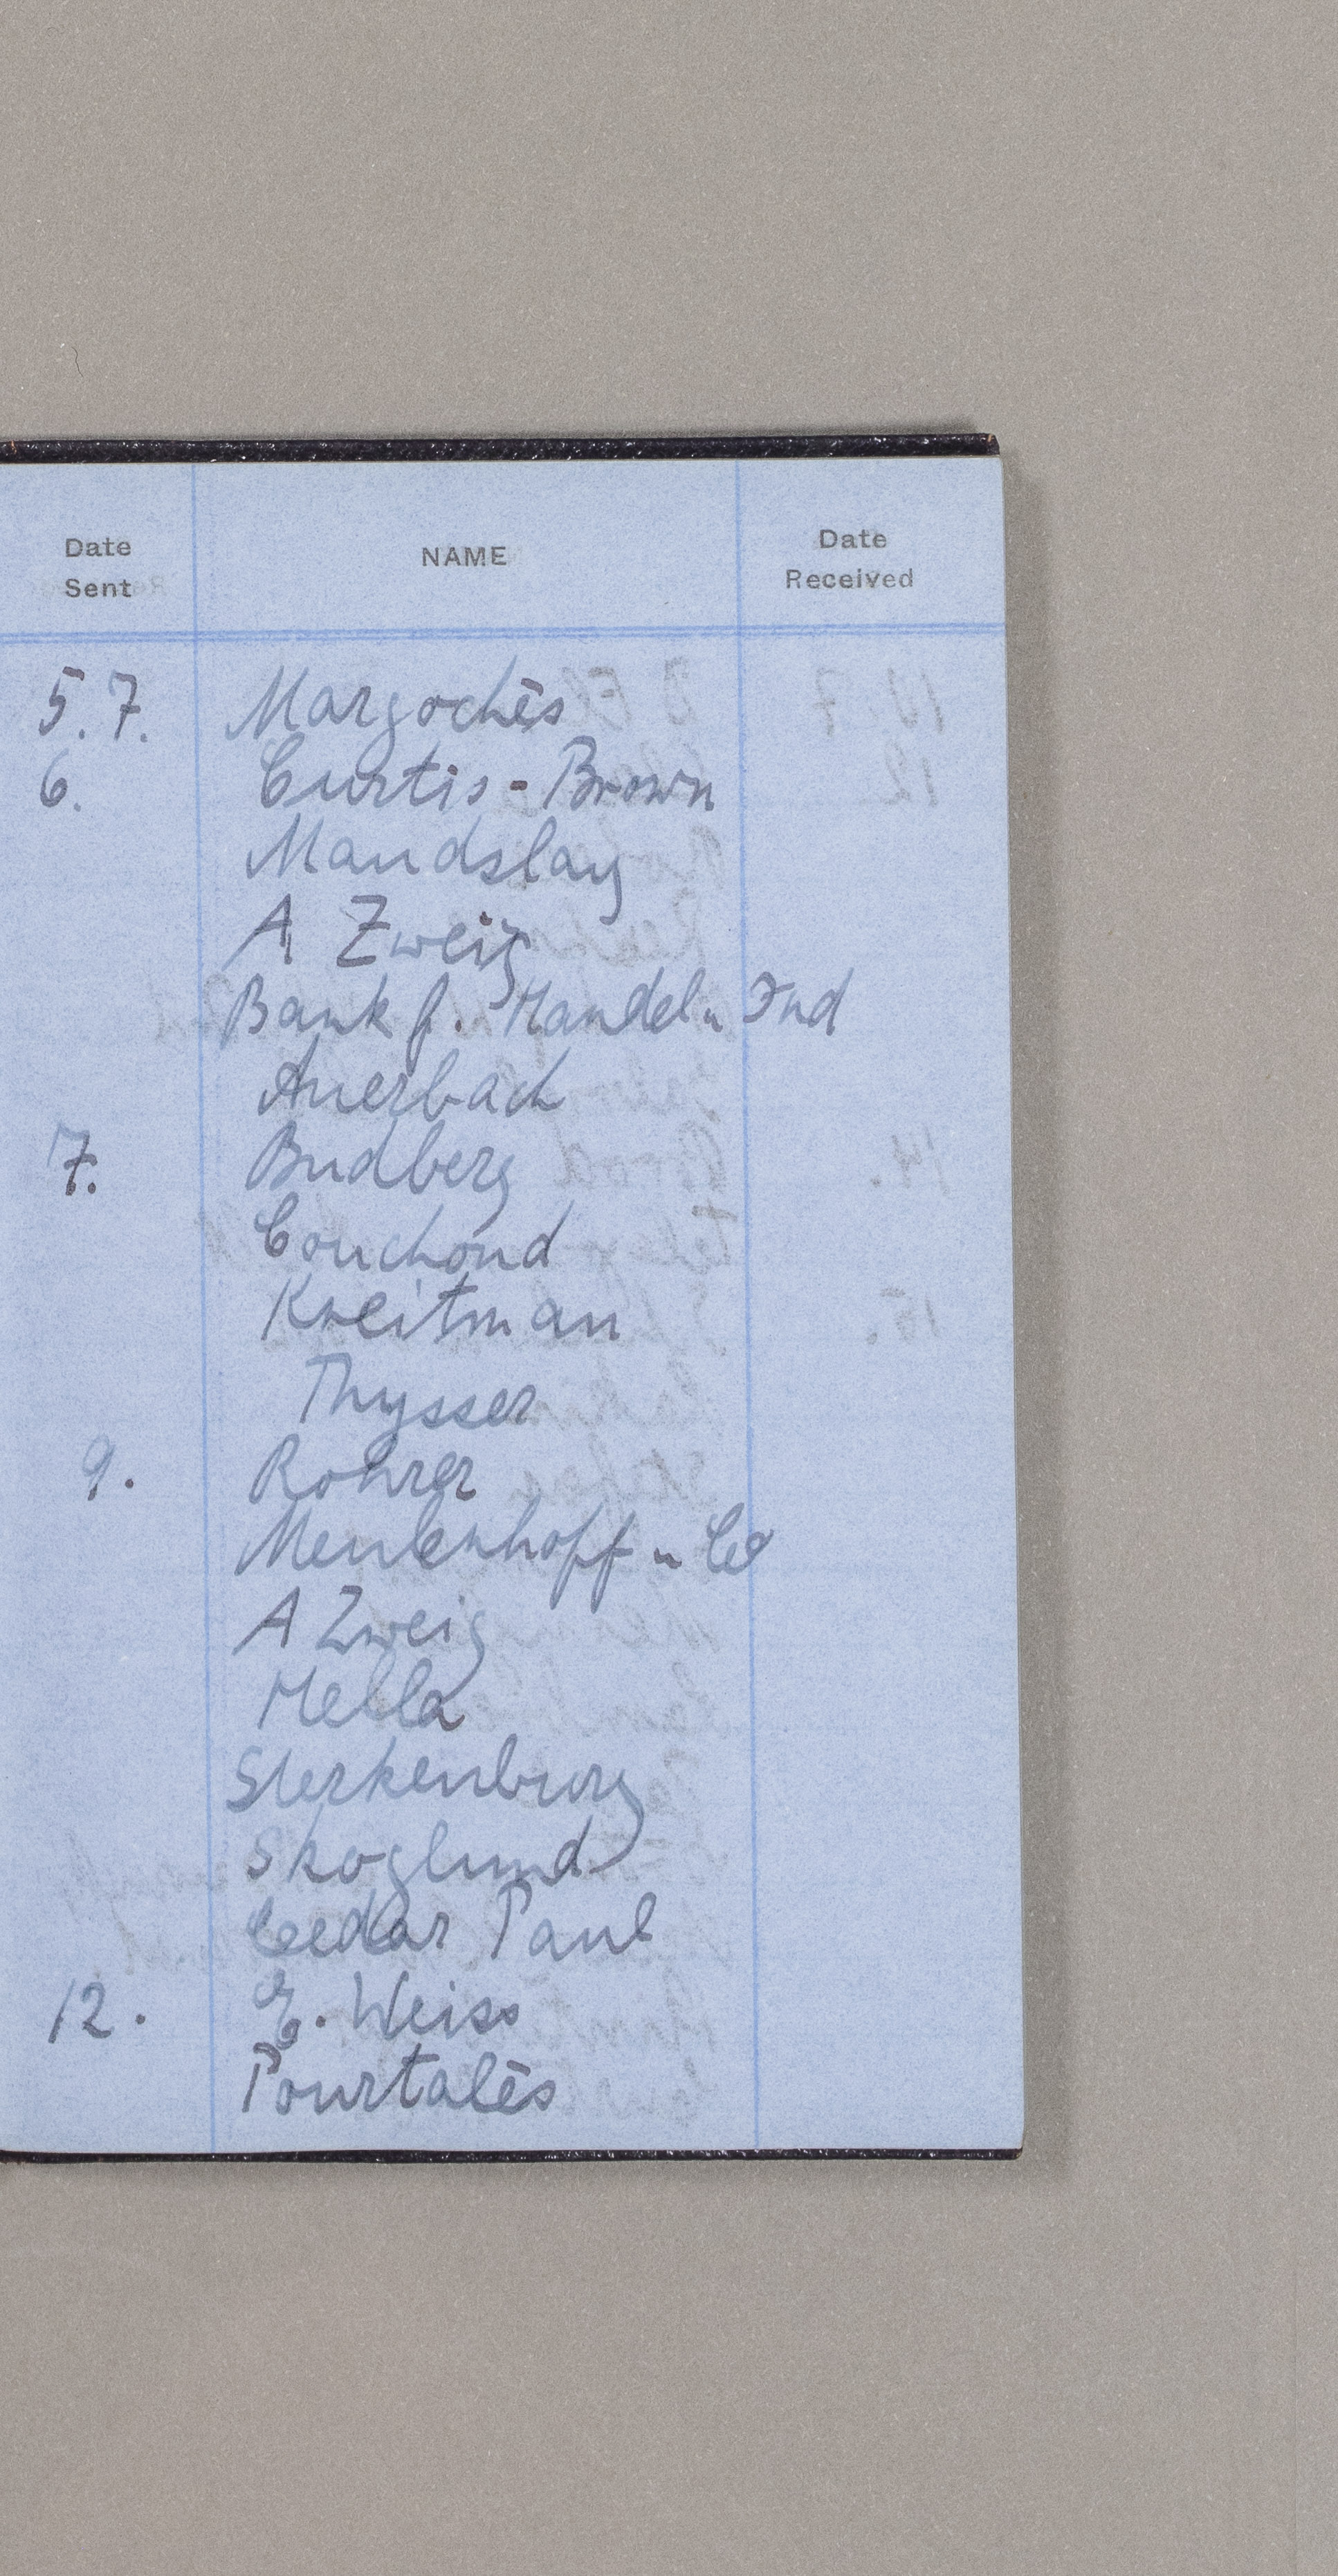 Date Sent NAME Date Received
5.7. Margochès
6. Curtis-Brown
Maudslay
A Zweig
Bank f. Handel u Ind
Auerbach
7. Budberg
Couchoud
Kreitman
Thysser
9. Rohrer
Meulenhoff u Co
A Zweig
Hella
Sterkenburg
Skoglund
Cedar Paul
12. E. Weiss
Pourtalès